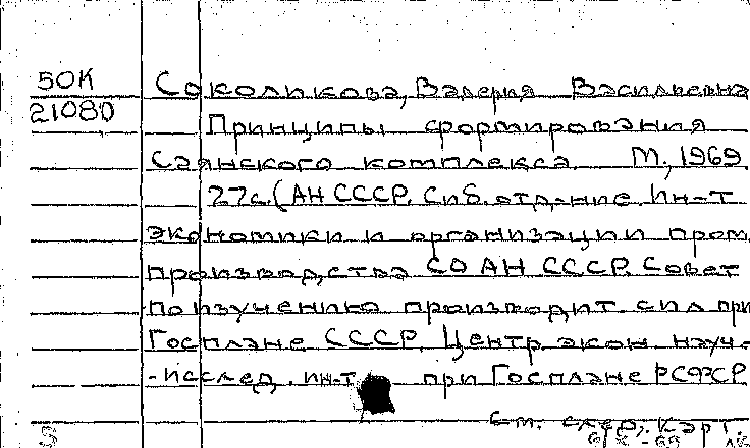 50К Соколикова, Валерия Васильевна
21080
Принципы формирования
Саянского комплекса М., 1969
27с. (АН СССР. Сиб. отд-ние Ин-т
экономики и организации пром.
производства СО АН СССР. Совет
по изучению производит. сил при
Госплане СССР. Центр. экон. науч.-
-исслед. ин-т при Госплане РСФСР.
См. след. карт.